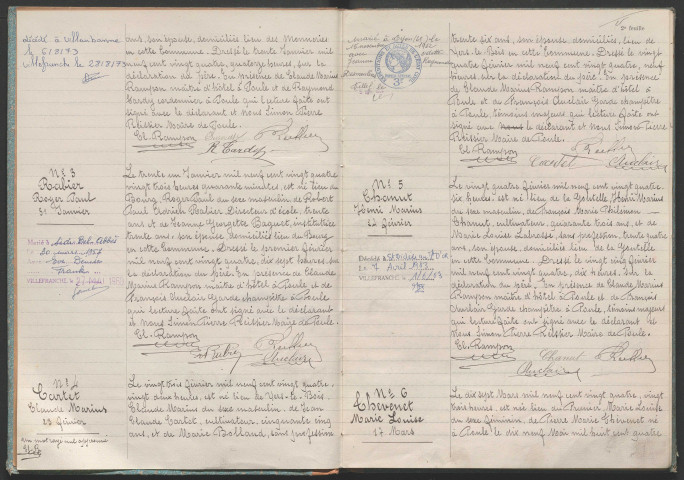 ans, son épouse, domiciliés lieu des Monneries
en cette Commune. Dressé le trente Janvier mil
neuf cent vingt quatre, quatorze heures, sur la
déclaration du Père. En présence de Claude Marius
Rampon maître d'hôtel à Poule et de Raymond
Tardy cordonnier à Poule qui lecture faite ont
signé avec le déclarant et Nous Simon Pierre
Pelissier Maire de Poule.
Cl. Rampon
R Tardy
N° 3
Rabier
Roger Paul
31 Janvier
VILLEFRANCHE, le
Le trente un Janvier mil neuf cent vingt quatre
vingt trois heures quarante minutes, est né lieu du
Bourg, Roger Paul du sexe masculin de Robert
Paul Rabier Directeur d'école, trente
ans et de Jeanne Georgette Baquet, institutrice
trente ans, son épouse domiciliés lieu du Bourg
en cette Commune. Dressé le premier février
mil neuf cent vingt quatre, dix sept heures, sur la
déclaration du père. En présence de Claude
Marius Rampon maître d'hôtel à Poule et de
François Auclair Garde champêtre à Poule
qui lecture faite ont signé avec le déclarant
et Nous Simon Pierre Pelissier Maire de Poule.
Cl. Rampon
Auclair
N° 4
Cartet
Claude Marius
23 février
un mot rayé nul approuvé
Le vingt trois février mil neuf cent vingt quatre
vingt deux heures, est né lieu de Gers-le-Bois,
Claude Marius du sexe masculin, de Jean
Claude Cartet, cultivateur, cinquante cinq
ans, et de Marie Bolland, sans profession
2e feuille
trente six ans, son épouse domiciliés, lieu de
Gers-le-Bois en cette Commune. Dressé le vingt
quatre février mil neuf cent vingt quatre, neuf
heures, sur la déclaration du père. En présence
de Claude Marius Rampon maître d'hôtel à
Poule et de François Auclair Garde champêtre
à Poule, témoins majeurs qui lecture faite ont
signé avec le déclarant et Nous Simon Pierre
Pelissier Maire de Poule.
Cl. Rampon
Cartet
Auclair
N° 5
Chanut
Henri Marius
24 février
VILLEFRANCHE, le
Le vingt quatre février mil neuf cent vingt quatre
six heures, est né lieu de la Henri Marius
du sexe masculin, de François Marie Philémon
Chanut, cultivateur, quarante trois ans, et de
Marie Louise Labrosse, sans profession, trente quatre
ans, son épouse, domiciliés lieu de la
en cette Commune. Dressé le vingt cinq février
mil neuf cent vingt quatre, dix heures, sur la
déclaration du père. En présence de Claude Marius
Rampon maître d'hôtel à Poule et de François
Auclair Garde champêtre à Poule, témoins majeurs
qui lecture faite ont signé avec le déclarant et
Nous Simon Pierre Pelissier Maire de Poule.
Cl. Rampon
Chanut
Auclair
N° 6
Thevenet
Marie Louise
17 Mars
Le dix sept Mars mil neuf cent vingt quatre, vingt
trois heures, est née lieu du Prunier, Marie Louise
du sexe féminin, de Pierre Marie Thevenet né
à Poule, le dix neuf Mai mil huit cent quatre